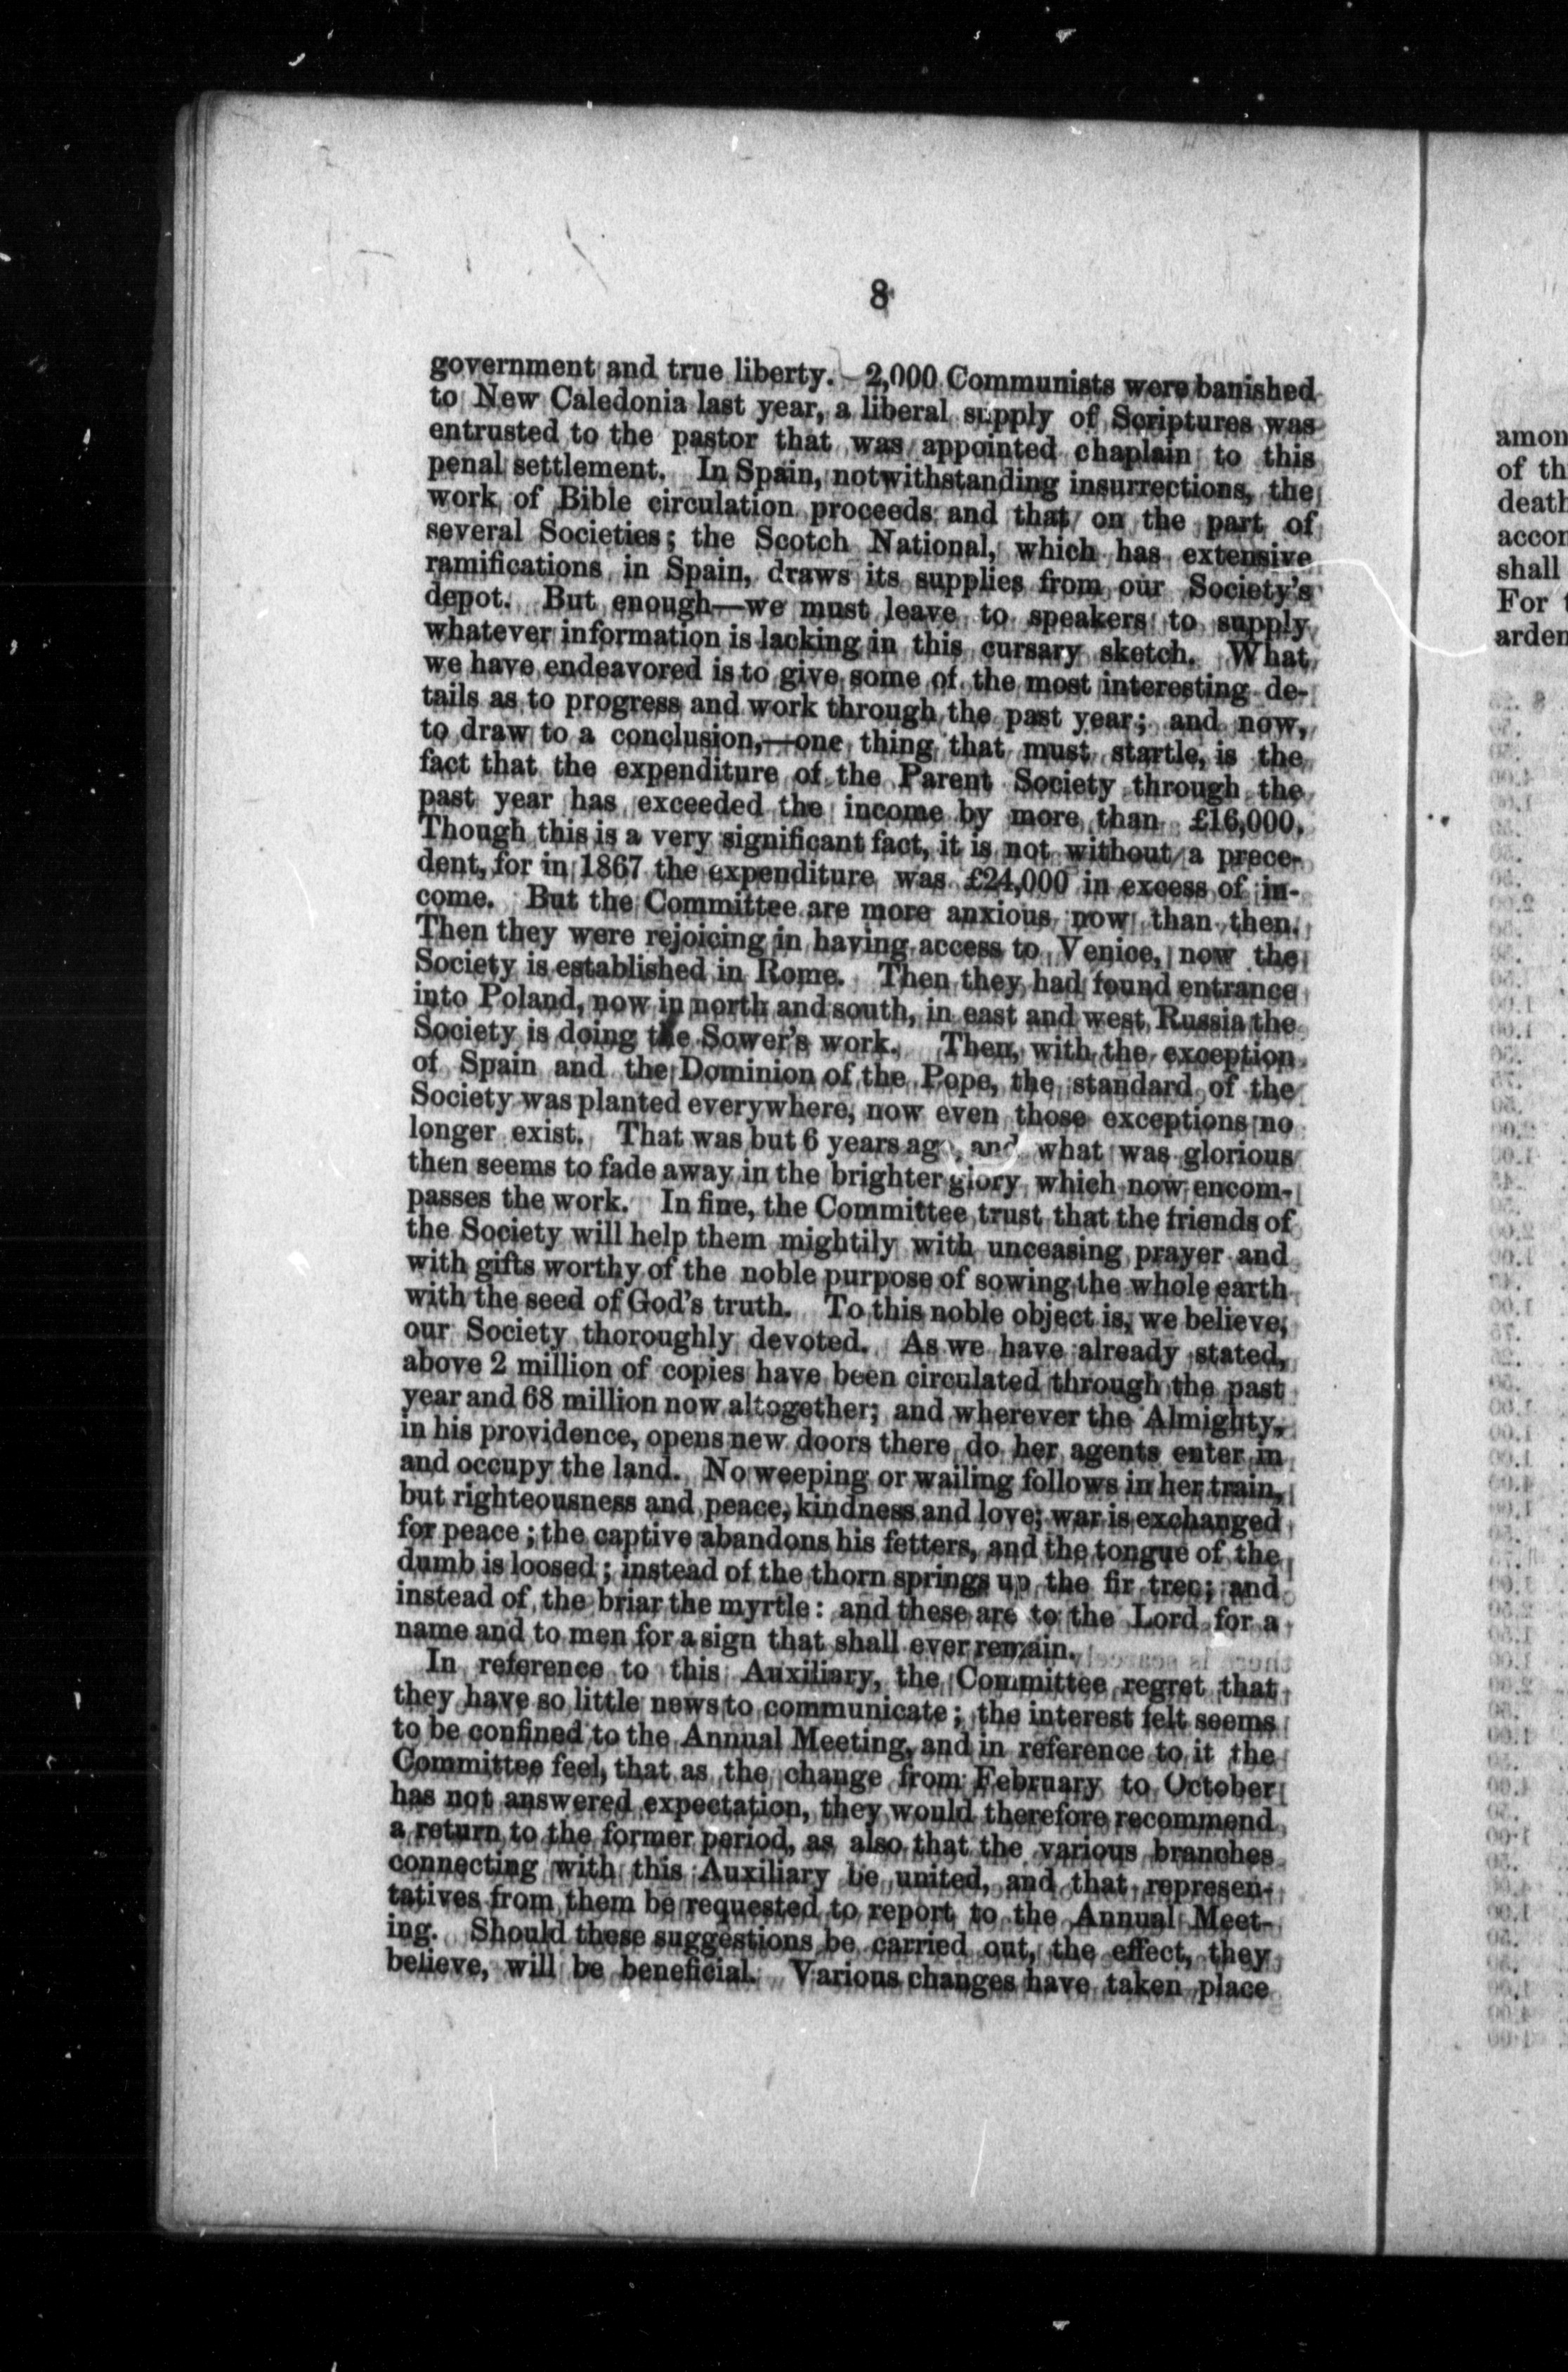 8
government and true liberty. 2,000 Communists were banished
to New Caledonia last year, a liberal supply of Scriptures was
entrusted to the pastor that was appointed chaplain to this
penal settlement. In Spain, notwithstanding insurrections, the
work of Bible circulation proceeds and that on the part of
several Societies; the Scotch National, which has extensive
ramifications in Spain, draws its supplies from our Society's
depot. But enough—we must leave to speakers to supply
whatever information is lacking in this cursary sketch. What
we have endeavored is to give some of the most interesting de-
tails as to progress and work through the past year; and now,
to draw to a conclusion,—one thing that must startle, is the
fact that the expenditure of the Parent Society through the
past year has exceeded the income by more than £16,000.
Though this is a very significant fact, it is not without a prece-
dent, for in 1867 the expenditure was £24,000 in excess of in-
come. But the Committee are more anxious now than then.
Then they were rejoicing in having access to Venice, now the
Society is established in Rome. Then they had found entrance
into Poland, now in north and south, in east and west Russia the
Society is doing the Sower's work. Then, with the exception
of Spain and the Dominion of the Pope, the standard of the
Society was planted everywhere, now even those exceptions no
longer exist. That was but 6 years ago, and what was glorious
then seems to fade away in the brighter glory which now encom-
passes the work. In fine, the Committee trust that the friends of
the Society will help them mightily with unceasing prayer and
with gifts worthy of the noble purpose of sowing the whole earth
with the seed of God's truth. To this noble object is, we believe,
our Society thoroughly devoted. As we have already stated,
above 2 million of copies have been circulated through the past
year and 68 million now altogether; and wherever the Almighty,
in his providence, opens new doors there do her agents enter in
and occupy the land. No weeping or wailing follows in her train,
but righteousness and peace, kindness and love; war is exchanged
for peace; the captive abandons his fetters, and the tongue of the
dumb is loosed; instead of the thorn springs up the fir tree; and
instead of the briar the myrtle: and these are to the Lord for a
name and to men for a sign that shall ever remain.
In reference to this Auxiliary, the Committee regret that
they have so little news to communicate; the interest felt seems
to be confined to the Annual Meeting, and in reference to it the
Committee feel, that as the change from February to October
has not answered expectation, they would therefore recommend
a return to the former period, as also that the various branches
connecting with this Auxiliary be united, and that represen-
tatives from them be requested to report to the Annual Meet-
ing. Should these suggestions be carried out, the effect, they
believe, will be beneficial. Various changes have taken place
amon
of th
death
accor
shall
For
arden